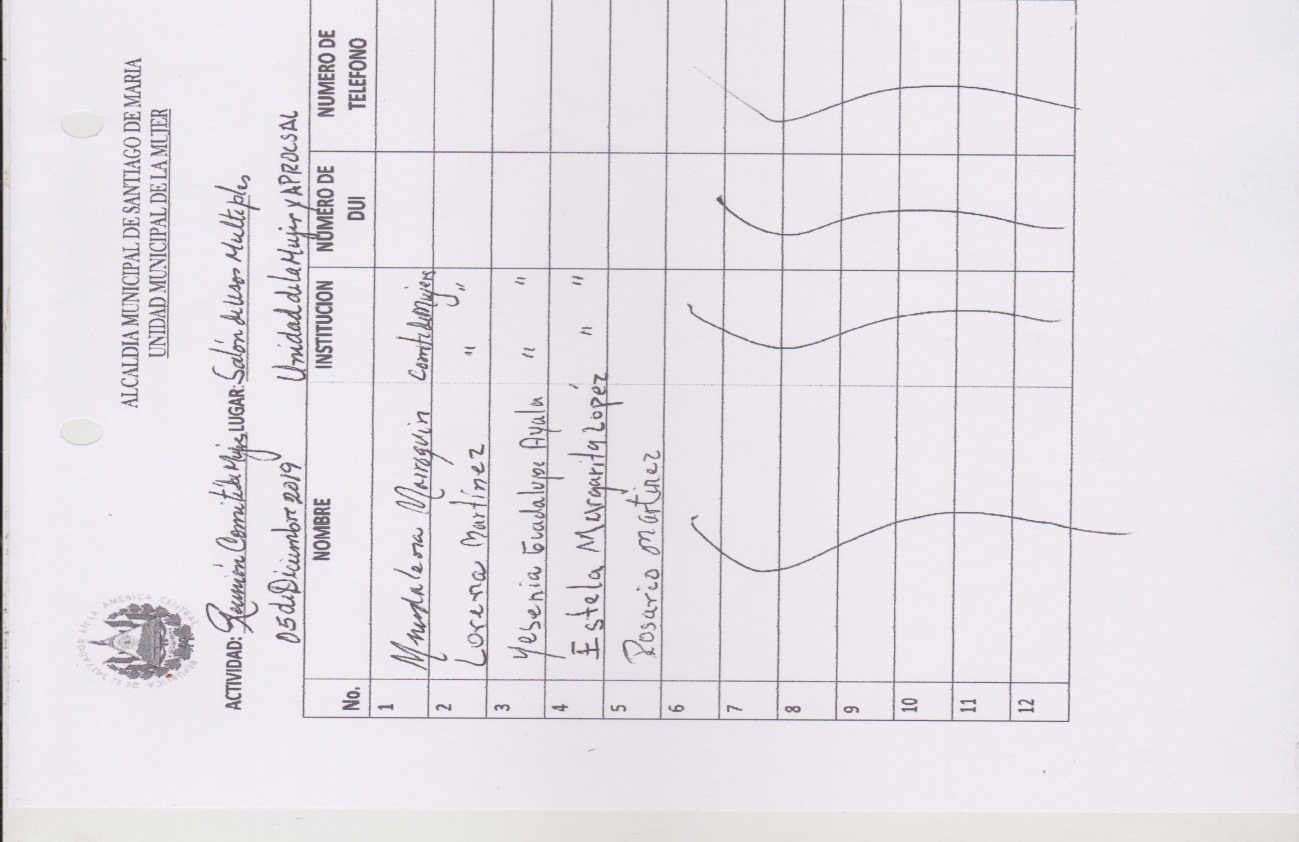 ALCALDIA MUNICIPAL DE SANTIAGO DE MARIA
UNIDAD MUNICIPAL DE LA MUJER
ACTIVIDAD: Reunión Comité de Mujeres LUGAR: Salón de usos Multiples
05 de Diciembre 2019 Unidad de la Mujer y APROCSAL
No. NOMBRE INSTITUCION NÚMERO DE DUI NUMERO DE TELEFONO
1 Marroquin Comité de Mujeres
2 Lorena Martínez " "
3 Yesenia Guadalupe Ayala " "
4 Estela Margarita López " "
5 Rosario Martinez
6
7
8
9
10
11
12